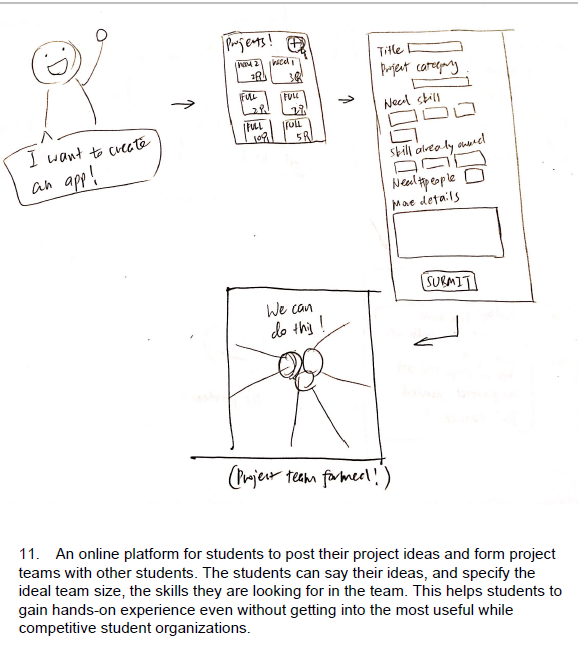 I want to create
an app!
Projects!
need 2
2
need 1
3
FULL
2
FULL
FULL
10
FULL
5
Title
Project category
Need skill
Skill already owned
Need #people
More details
SUBMIT
We can
do this!
(Project team formed!)
11. An online platform for students to post their project ideas and form project
teams with other students. The students can say their ideas, and specify the
ideal team size, the skills they are looking for in the team. This helps students to
gain hands-on experience even without getting into the most useful while
competitive student organizations.